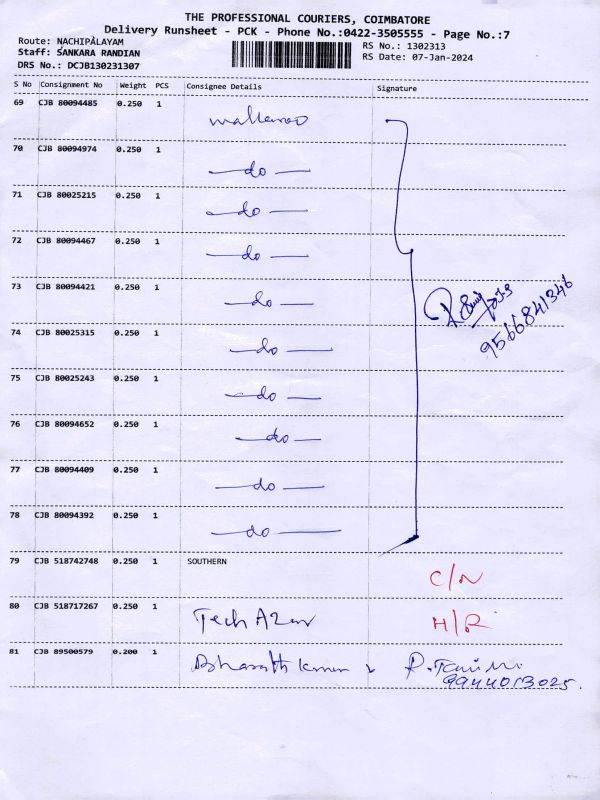 THE PROFESSIONAL COURIERS, COIMBATORE
Delivery Runsheet - PCK - Phone No.:0422-3505555 - Page No.:7
Route: NACHIPALAYAM
Staff: SANKARA RANDIAN
DRS No.: DCJB130231307
RS No.: 1302313
RS Date: 07-Jan-2024
S No Consignment No Weight PCS Consignee Details Signature
69 CJB 80094485 0.250 1
70 CJB 80094974 0.250 1 — do —
71 CJB 80025215 0.250 1 — do —
72 CJB 80094467 0.250 1 — do —
73 CJB 80094421 0.250 1 — do —
74 CJB 80025315 0.250 1 — do —
9566841346
75 CJB 80025243 0.250 1 — do —
76 CJB 80094652 0.250 1 — do —
77 CJB 80094409 0.250 1 — do —
78 CJB 80094392 0.250 1 — do —
79 CJB 518742748 0.250 1 SOUTHERN C/N
80 CJB 518717267 0.250 1 Tech H/R
81 CJB 89500579 0.200 1 Bharath
9944013025.